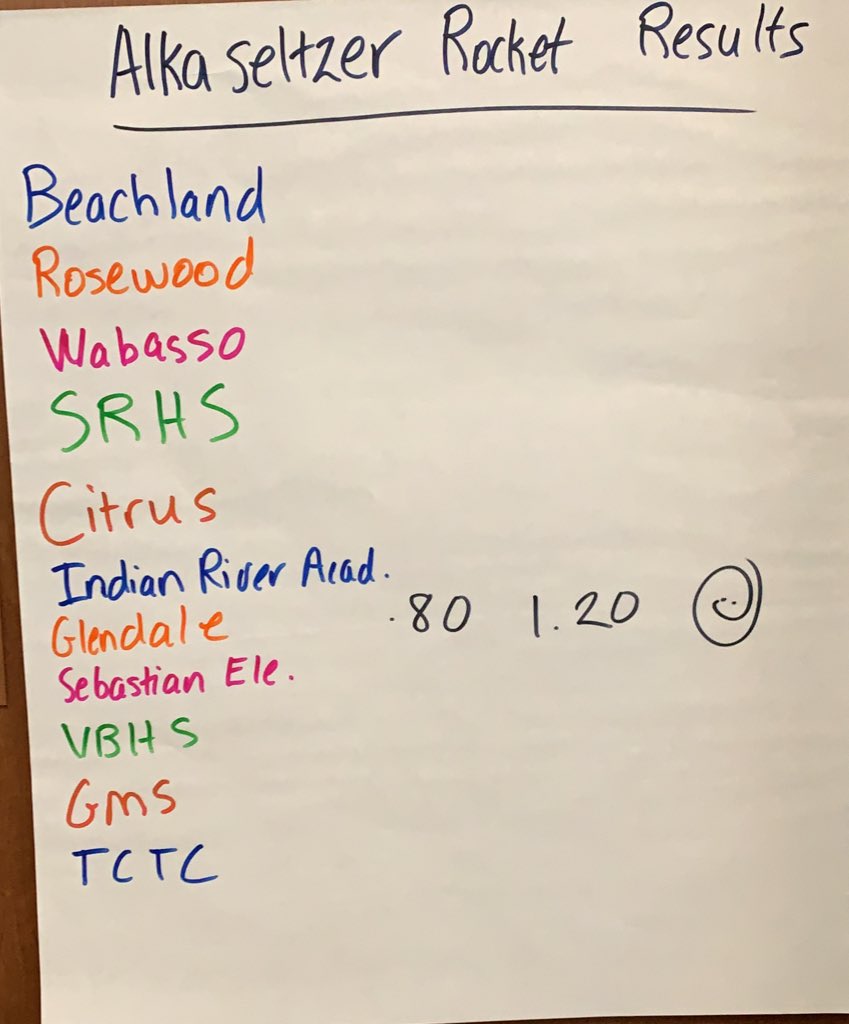 Alka seltzer Rocket Results
Beachland
Rosewood
Wabasso
SRHS
Citrus
Indian River Acad.
Glendale .80 1.20
Sebastian Ele.
VBHS
Gms
TCTC